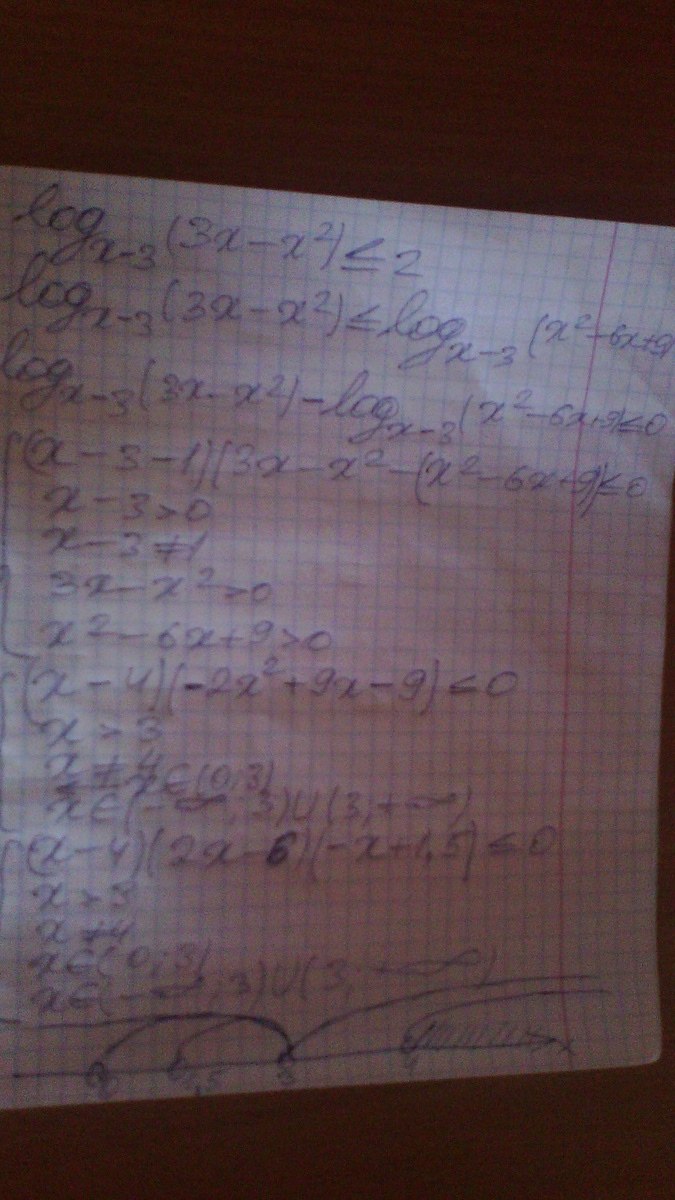 log_{x-3}(3x-x²)≤2
log_{x-3}(3x-x²)≤log_{x-3}(x²-6x+9)
log_{x-3}(3x-x²)-log_{x-3}(x²-6x+9)≤0
(x-3-1)(3x-x²-(x²-6x+9)≤0
x-3>0
x-3≠1
3x-x²>0
x²-6x+9>0
(x-4)(-2x²+9x-9)≤0
x>3
x≠4
x∈(0;3)
x∈(-∞;3)∪(3;+∞)
(x-4)(2x-6)(-x+1,5)≤0
x>3
x≠4
x∈(0;3)
x∈(-∞;3)∪(3;+∞)
0 1,5 3 4 x